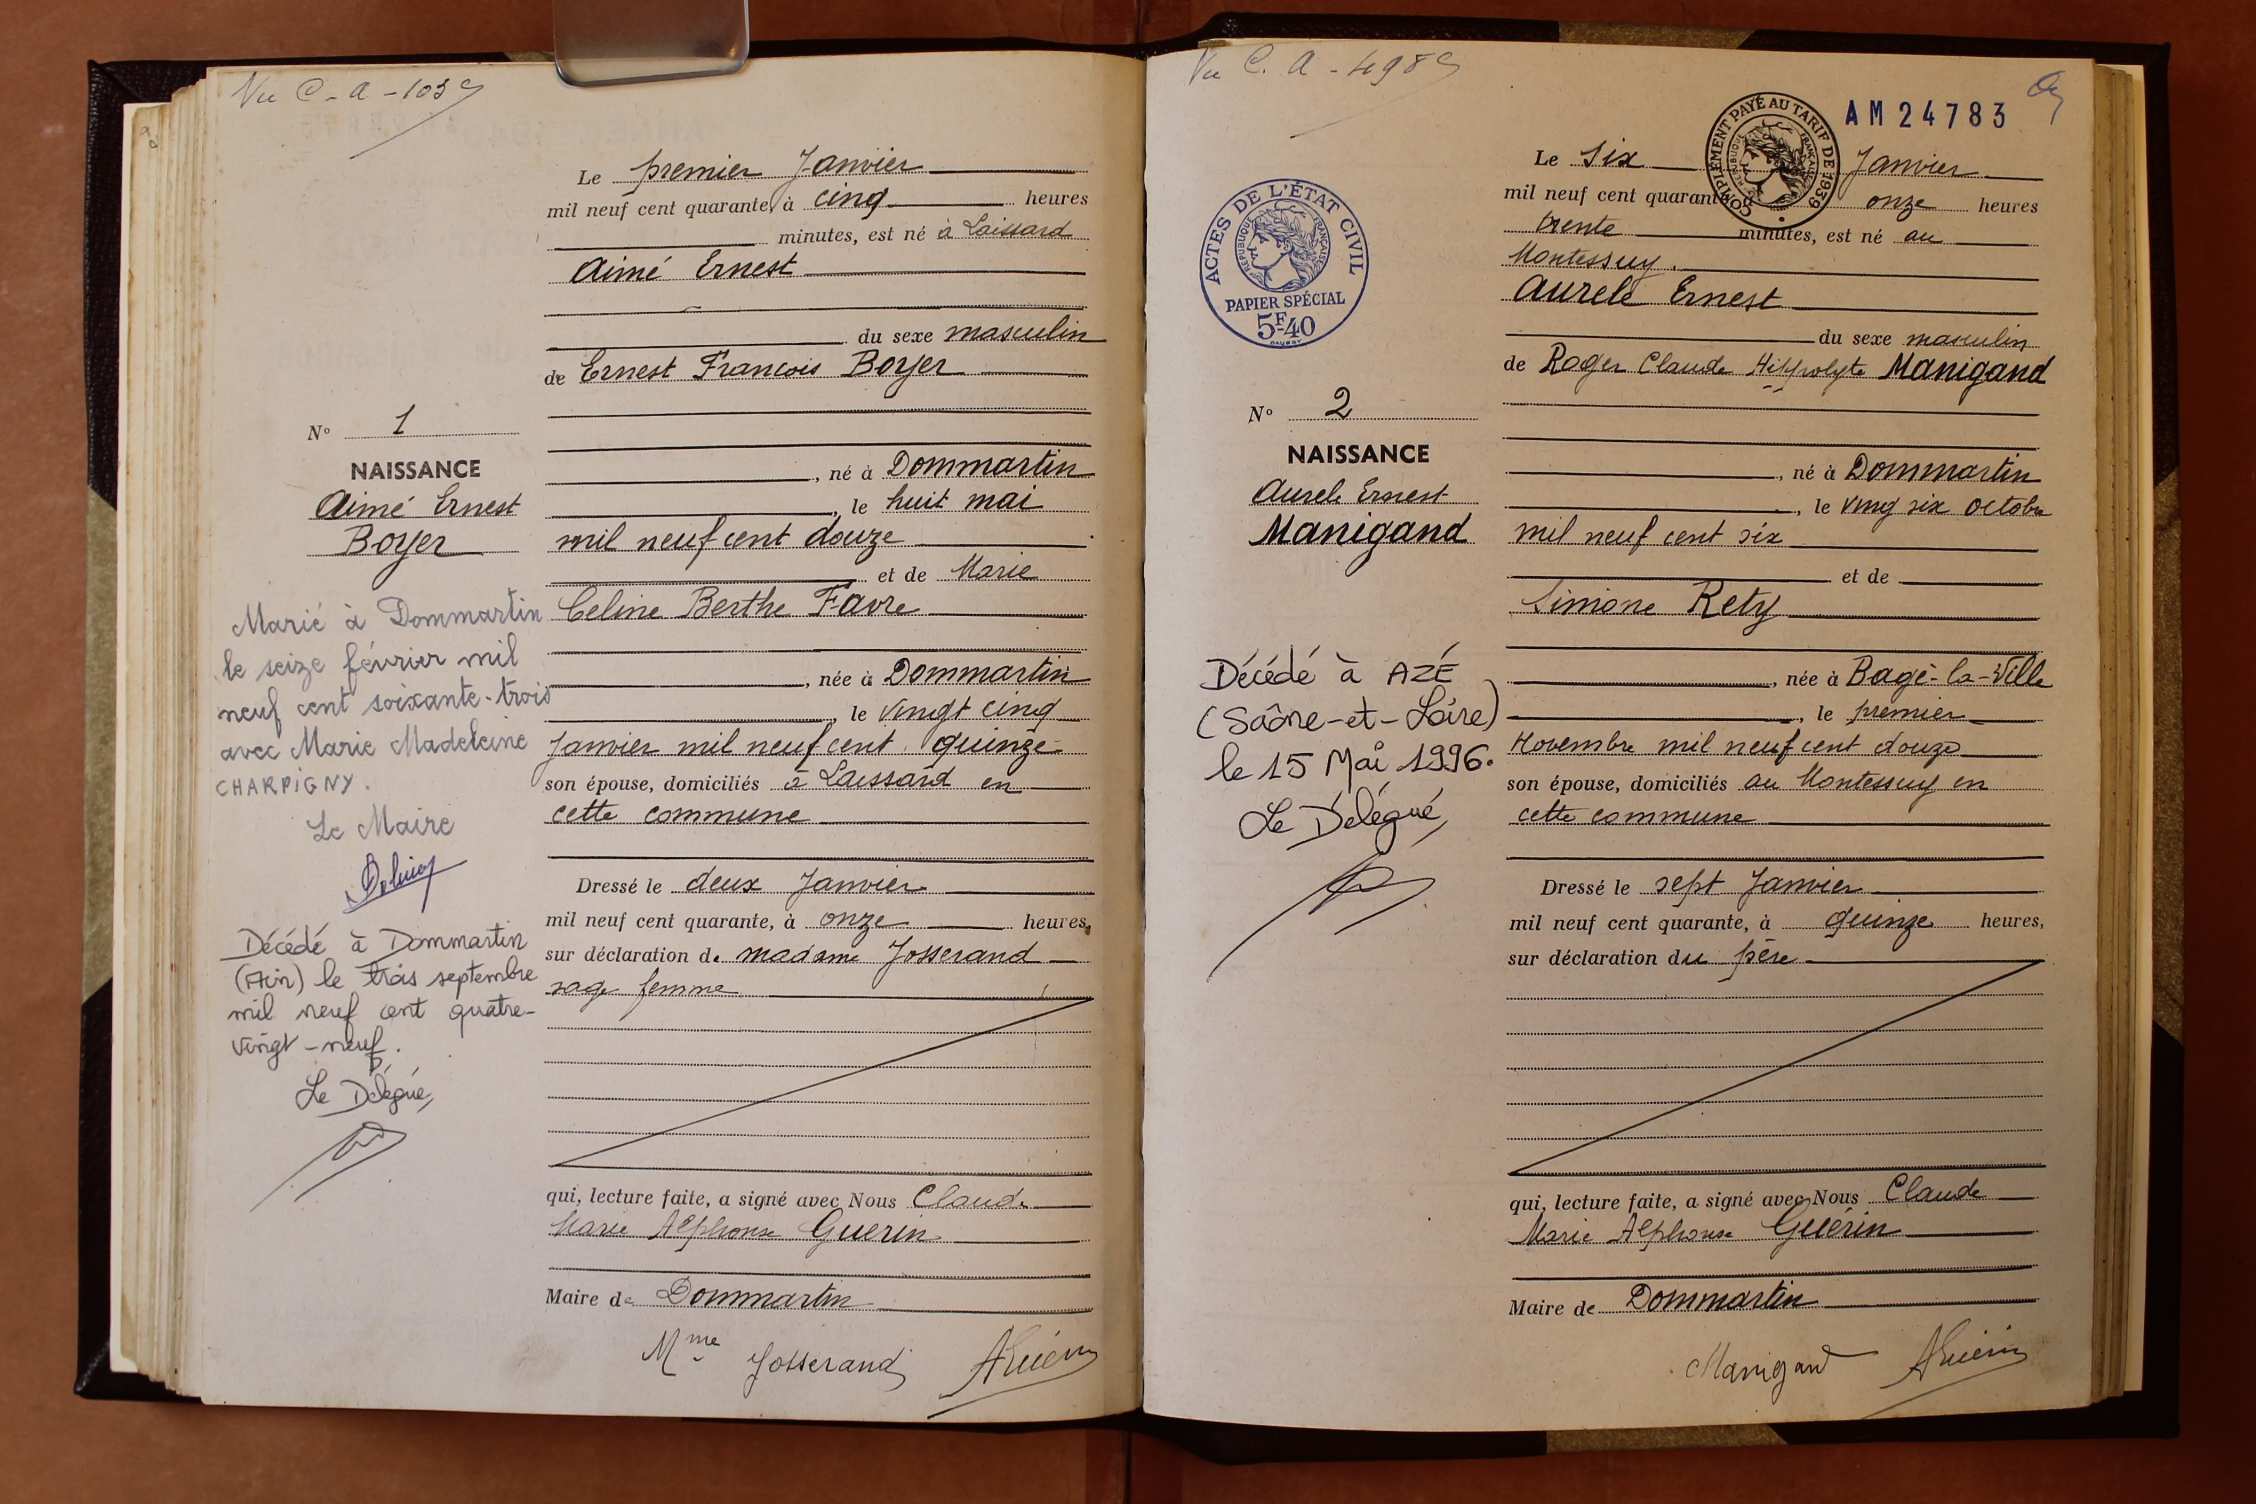 Vu C-A-103
Le premier Janvier
mil neuf cent quarante, à cinq heures
minutes, est né à Laissard
Aimé Ernest
du sexe masculin
de Ernest Francois Boyer
N° 1
NAISSANCE
Aimé Ernest
Boyer
, né à Dommartin
, le huit mai
mil neuf cent douze
et de Marie
Celine Berthe Favre
, née à Dommartin
, le vingt cinq
Janvier mil neuf cent quinze
son épouse, domiciliés à Laissard en
cette commune
Dressé le deux Janvier
mil neuf cent quarante, à onze heures,
sur déclaration de madame Josserand
sage femme
qui, lecture faite, a signé avec Nous Claude
Marie Alphonse Guerin
Maire de Dommartin
Mme Josserand AGuérin
Marié à Dommartin
le seize février mil
neuf cent soixante-trois
avec Marie Madeleine
CHARPIGNY.
Le Maire
Décédé à Dommartin
(Ain) le trois septembre
mil neuf cent quatre-
vingt-neuf.
Le Délégué,
Vu C. A - 498
AM 24783
COMPLÉMENT PAYÉ AU TARIF DE 1939
RÉPUBLIQUE FRANÇAISE
Le six Janvier
mil neuf cent quarante, à onze heures
trente minutes, est né au
Montessuy.
Aurele Ernest
du sexe masculin
de Roger Claude Hippolyte Manigand
ACTES DE L'ÉTAT CIVIL
RÉPUBLIQUE FRANÇAISE
PAPIER SPÉCIAL
5F-40
N° 2
NAISSANCE
Aurele Ernest
Manigand
, né à Dommartin
, le ving six octobre
mil neuf cent six
et de
Simone Rety
, née à Bagé-la-Ville
, le premier
Novembre mil neuf cent douze
son épouse, domiciliés au Montessuy en
cette commune
Dressé le sept Janvier
mil neuf cent quarante, à quinze heures,
sur déclaration du père
qui, lecture faite, a signé avec Nous Claude
Marie Alphonse Guérin
Maire de Dommartin
Manigand AGuérin
Décédé à AZÉ
(Saône-et-Loire)
le 15 Mai 1996.
Le Délégué,